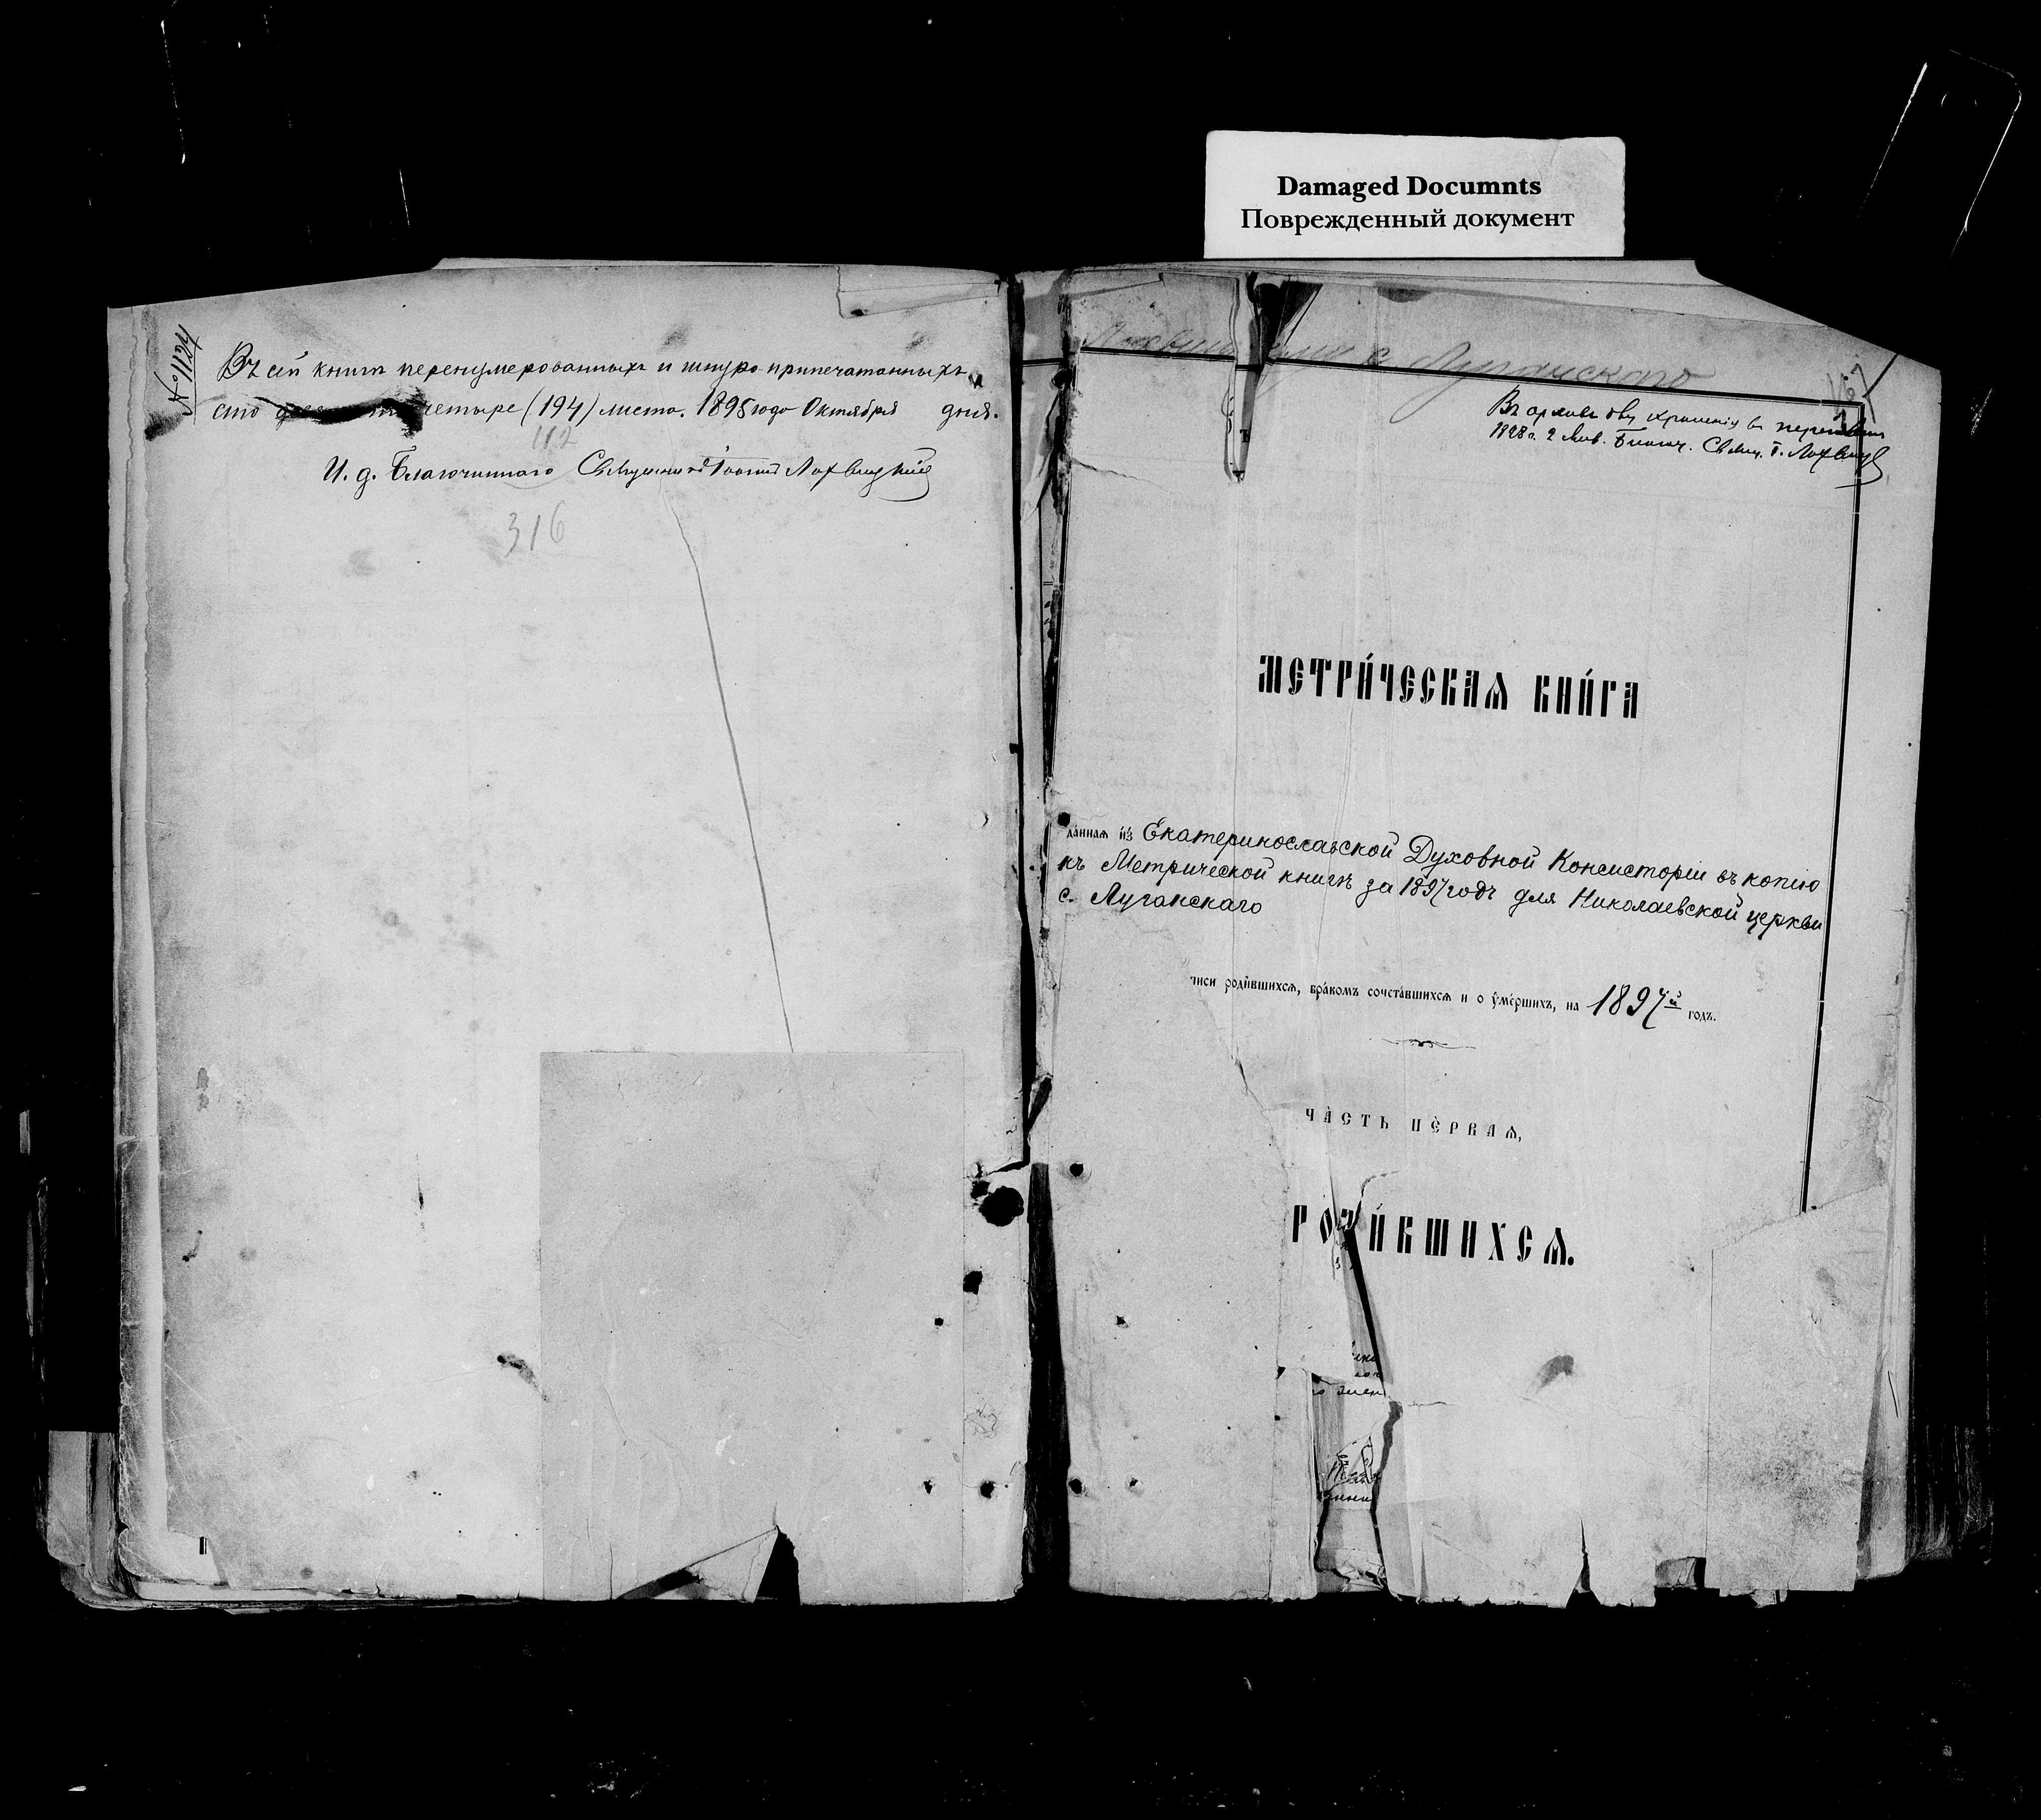 Damaged Documnts
Поврежденный документ
№ 1124
Въ сей книгѣ перенумерованныхъ и шнуро-припечатанныхъ
сто четыре (194) листа. 1895 года Октября дня.
112
И. д. Благочиннаго Священникъ Лохвицкій
316
с Луганскаго
167
Въ архивъ для храненія въ
1898 г. 2 Янв. Благоч. Свящ. Г. Лохвиц
МЕТРИ́ЧЕСКАѦ КНИ́ГА
да́ннаѧ и҆з̾ Екатеринославской Духовной Консисторіи въ копію
къ Метрической книгѣ за 1897 годъ для Николаевской церкви
с. Луганскаго
писи роди́вшихсѧ, бра́комъ сочета́вшихсѧ и о ᲂу҆ме́ршихъ, на 1897й годъ.
ЧА́СТЬ ПЕ́РВАѦ,
РОДИ́ВШИХСѦ.